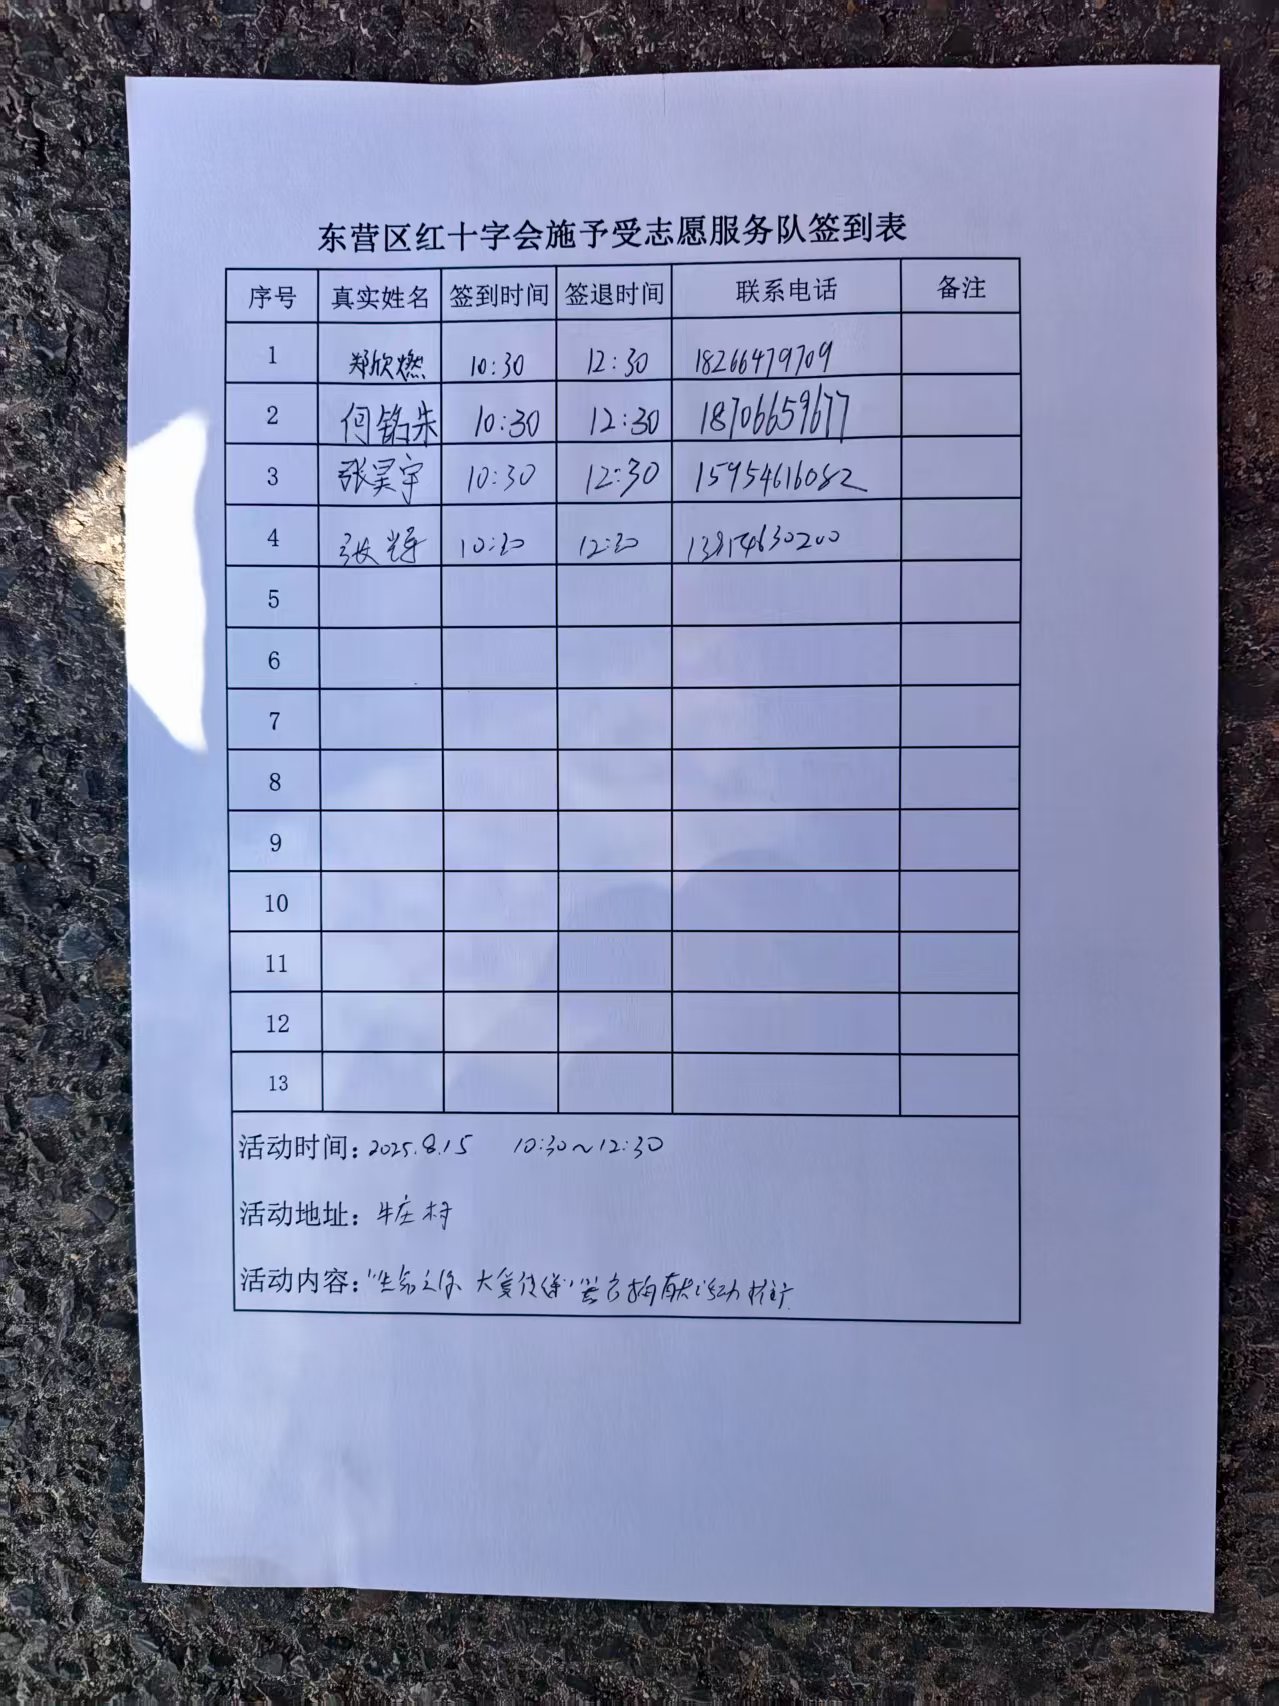 东营区红十字会施予受志愿服务队签到表
序号 真实姓名 签到时间 签退时间 联系电话 备注
1 郑欣燃 10:30 12:30 18266479709
2 何铭朱 10:30 12:30 18706659677
3 张昊宇 10:30 12:30 15954616082
4 张 10:30 12:30
5
6
7
8
9
10
11
12
13
活动时间: 2025.8.15 10:30~12:30
活动地址: 牛庄村
活动内容: "生命之 大爱传递" 器官捐献活动推广